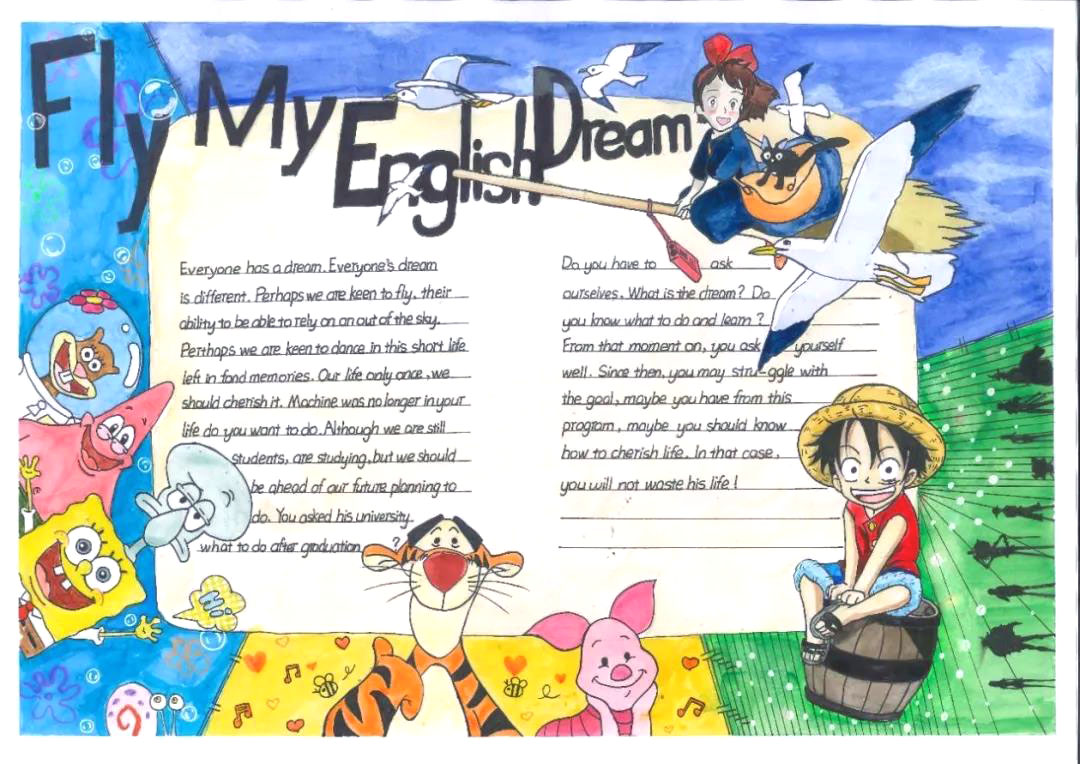 Fly My English Dream
Everyone has a dream. Everyone's dream
is different. Perhaps we are keen to fly, their
ability to be able to rely on an out of the sky.
Perthaps we are keen to dance in this short life
left in fond memories. Our life only once, we
should cherish it. Machine was no longer in your
life do you want to do. Although we are still
students, are studying, but we should
be ahead of our future planning to
do. You asked his university
what to do after graduation ?
Do you have to ask
ourselves. What is the dream? Do
you know what to do and learn ?
From that moment on, you ask yourself
well. Since then, you may stru-ggle with
the goal, maybe you have from this
program, maybe you should know
how to cherish life. In that case,
you will not waste his life !
Hi